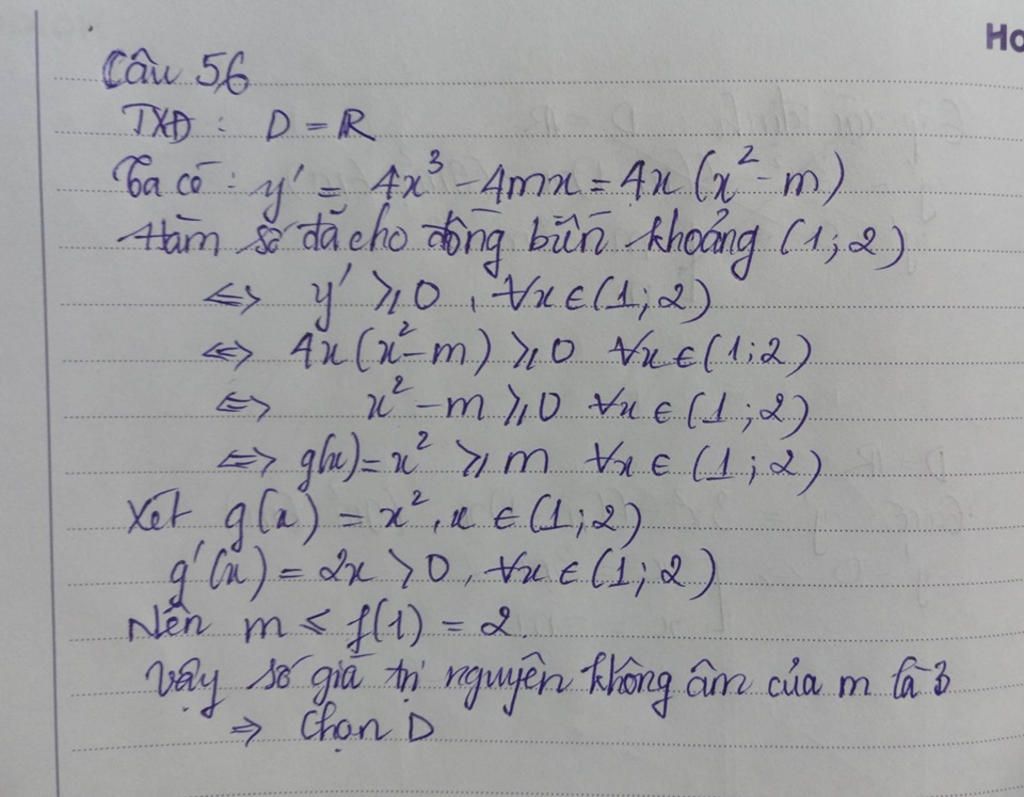 Ho
Câu 56
TXĐ : D = ℝ
Ta có : y' = 4x³ - 4mx = 4x (x² - m)
Hàm số đã cho đồng biến khoảng (1 ; 2)
<=> y' ⩾ 0 , ∀x ∈ (1 ; 2)
<=> 4x (x² - m) ⩾ 0 ∀x ∈ (1 ; 2)
<=> x² - m ⩾ 0 ∀x ∈ (1 ; 2)
<=> g(x) = x² ⩾ m ∀x ∈ (1 ; 2)
Xét g(x) = x² , x ∈ (1 ; 2)
g'(x) = 2x > 0 , ∀x ∈ (1 ; 2)
Nên m ⩽ f(1) = 2.
Vậy số giá trị nguyên không âm của m là 3
=> Chọn D